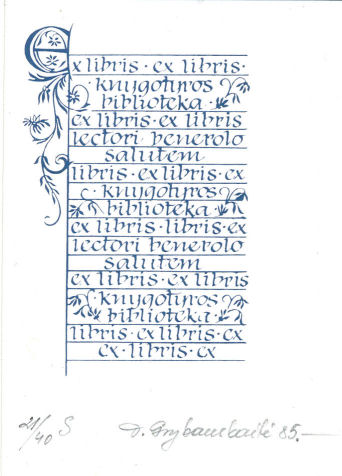 Ex libris · ex libris ·
knygotyros
biblioteka ·
ex libris · ex libris
lectori benevolo
salutem
libris · ex libris · ex
· knygotyros
biblioteka ·
ex libris · libris · ex
lectori benevolo
salutem
ex libris · ex libris
· knygotyros
biblioteka ·
libris · ex libris · ex
ex · libris · ex
21/40 S
85.